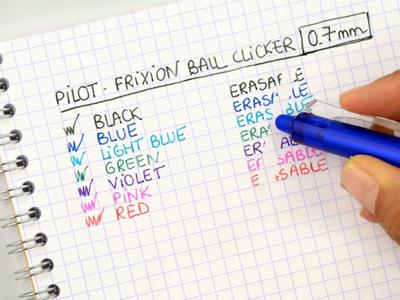 PILOT - FRIXION BALL CLICKER 0.7mm
BLACK
BLUE
LIGHT BLUE
GREEN
VIOLET
PINK
RED
ERASA E
ERASABLE
ERASABLE
ERA
ER ABL
E SABLE
E SABLE